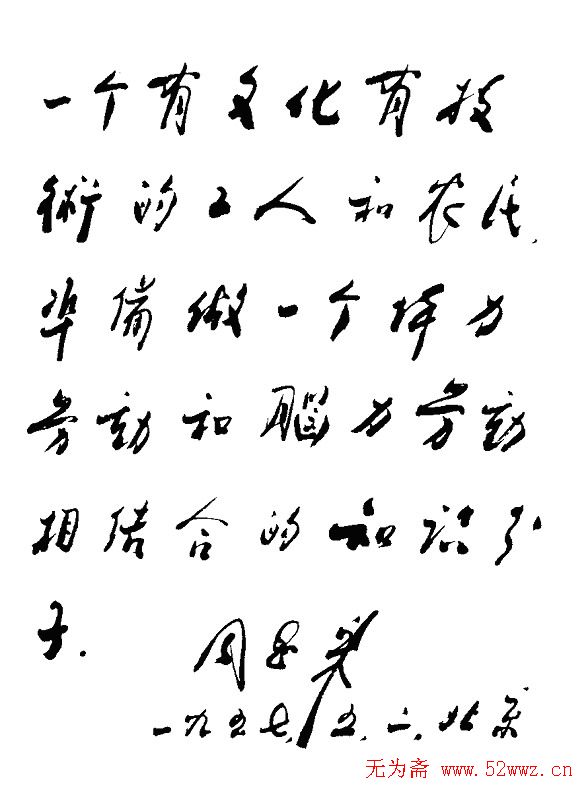 一个有文化有技
術的工人和农民,
準備做一个体力
劳动和腦力劳动
相结合的知识分
子.
周恩来
一九五七,五.二,北京
无为斋 www.52wwz.cn